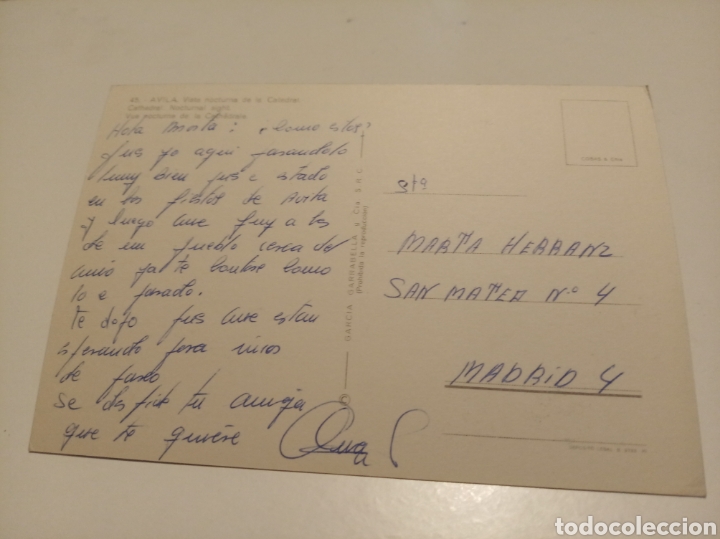 43. - AVILA. Vista nocturna de la Catedral
Cathedral. Nocturnal sight.
Vue nocturne de la Cathédrale
Hola Marta: ¿Como estas?
Pues yo aqui pasandolo
muy bien pues e estado
en las fiestas de Avila
y luego que fuy a las
de un pueblo cerca del
mio ya te contare como
lo e pasado.
Te dejo pues que estan
esperando para irnos
de paseo
Se despide tu amiga
que te quiere
GARCIA GARRABELLA y Cía. S.R.C.
(Prohibida la reproducción)
Srta
MARTA HERRANZ
SAN MATEO Nº 4
MADRID 4
todocoleccion